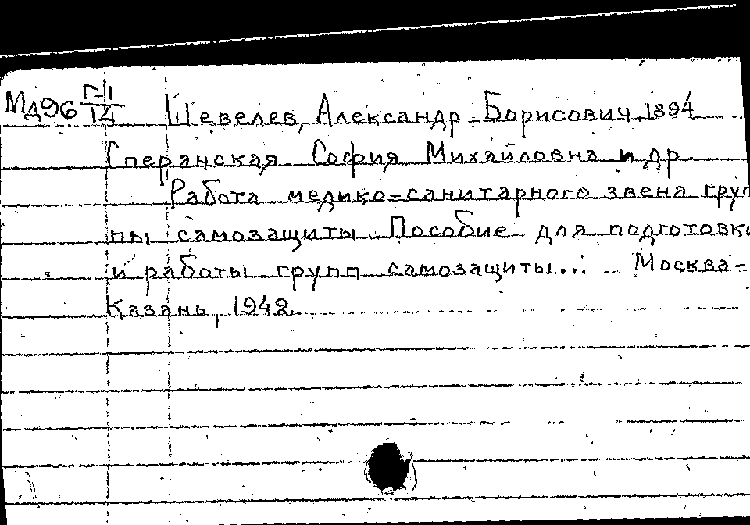 Мд96 Г-1/14 Шевелев, Александр Борисович, 1894
Сперанская София Михайловна и др.
Работа медико-санитарного звена груп
пы самозащиты. Пособие для подготовки
и работы групп самозащиты... Москва-
Казань, 1942.